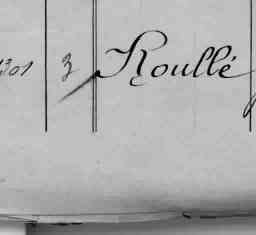 1301 3 Roullé